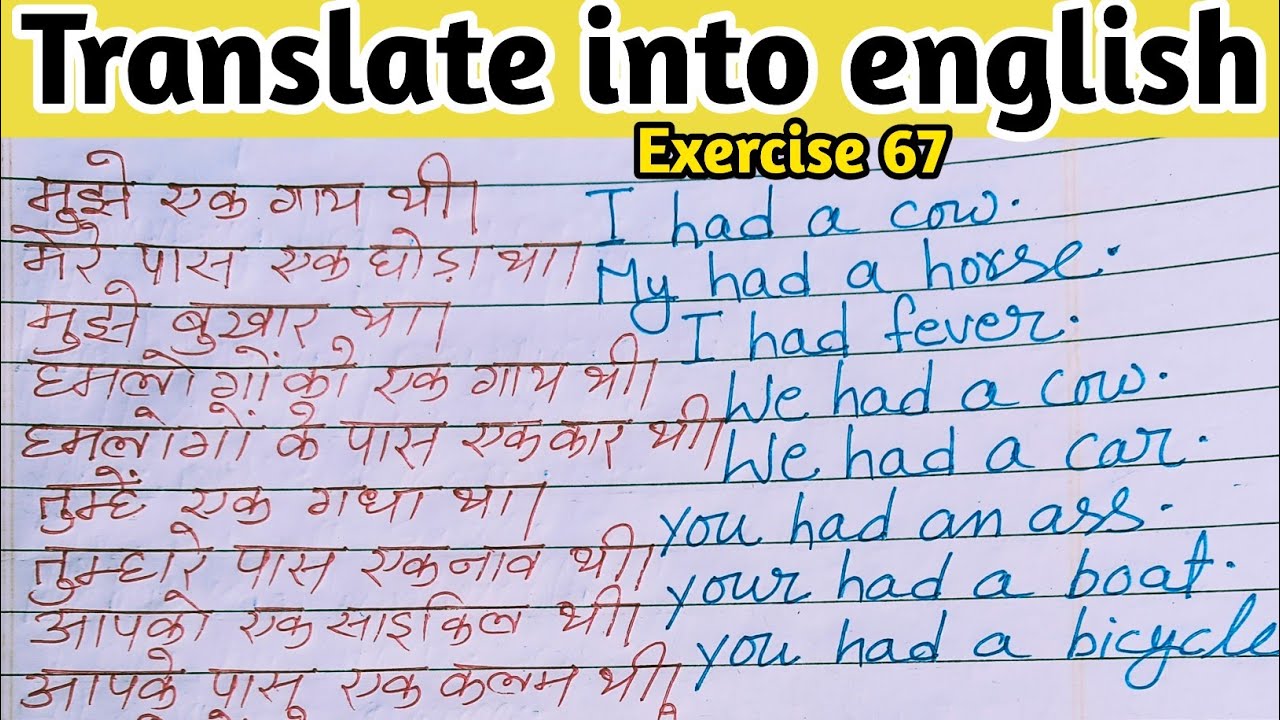 Translate into english
Exercise 67
मुझे एक गाय थी। I had a cow.
मेरे पास एक घोड़ा था। My had a horse.
मुझे बुखार था। I had fever.
हमलोगों को एक गाय थी। We had a cow.
हमलोगों के पास एक कार थी। We had a car.
तुम्हें एक गधा था। you had an ass.
तुम्हारे पास एक नाव थी। your had a boat.
आपको एक साइकिल थी। you had a bicycle
आपके पास एक कलम थी।